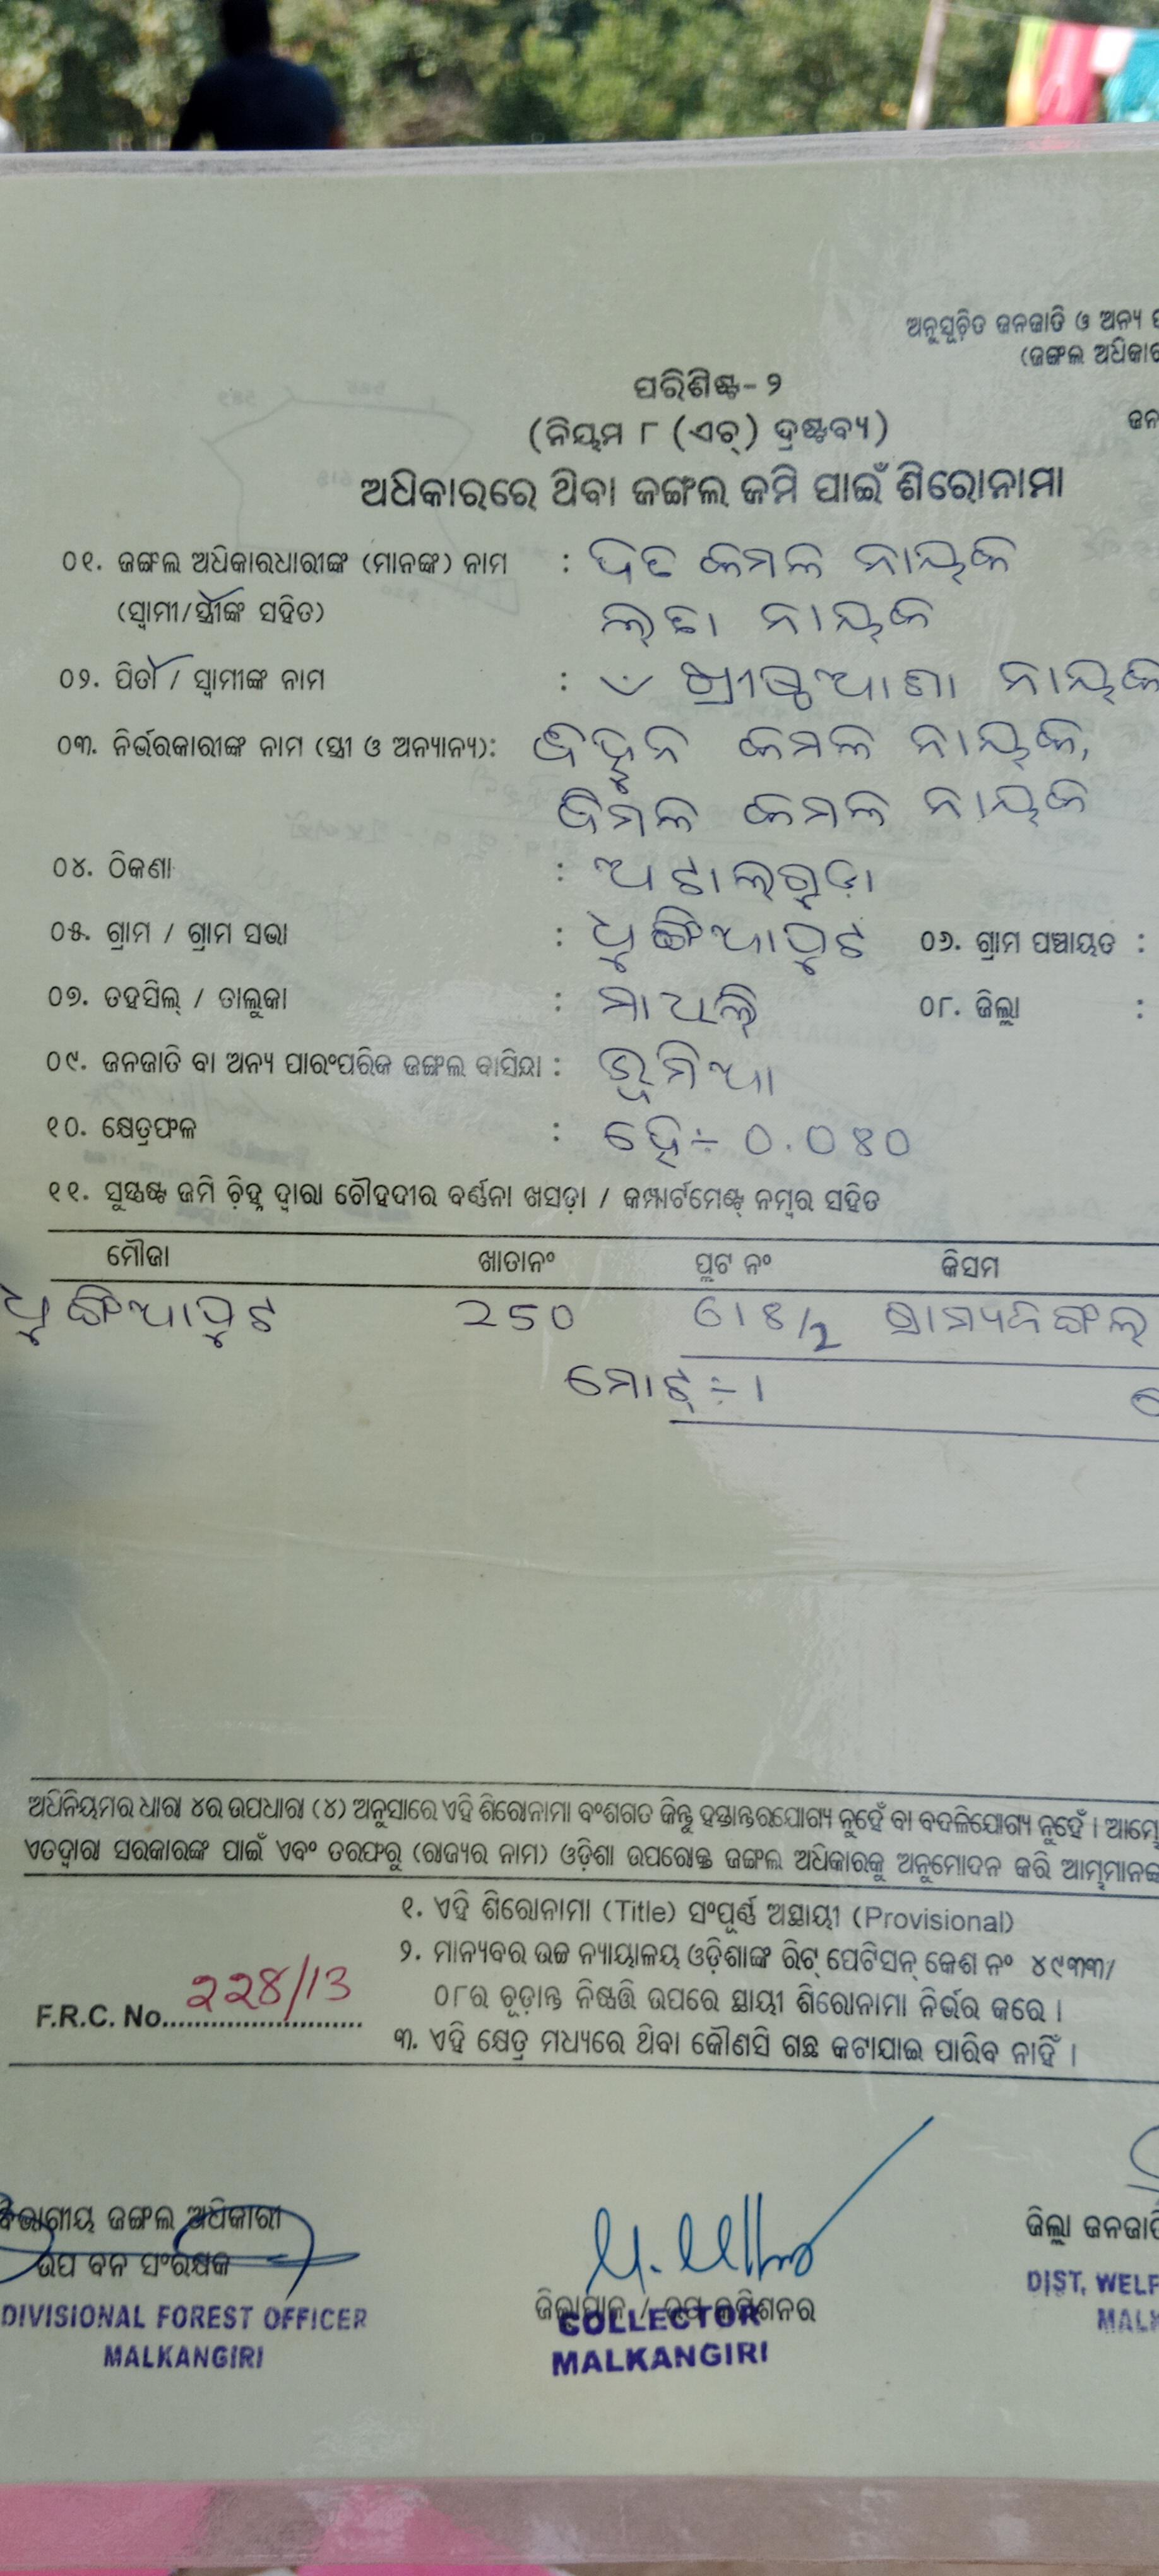 ଅନୁସୂଚିତ ଜନଜାତି ଓ ଅନ୍ୟ
(ଜଙ୍ଗଲ ଅଧିକାର
ପରିଶିଷ୍ଟ- ୨
ଜନ
(ନିୟମ ୮ (ଏଚ୍) ଦ୍ରଷ୍ଟବ୍ୟ)
ଅଧିକାରରେ ଥିବା ଜଙ୍ଗଲ ଜମି ପାଇଁ ଶିରୋନାମା
୦୧. ଜଙ୍ଗଲ ଅଧିକାରଧାରୀଙ୍କ (ମାନଙ୍କ) ନାମ : କମଳ ନାୟକ
(ସ୍ଵାମୀ/ସ୍ତ୍ରୀଙ୍କ ସହିତ) ନାୟକ
୦୨. ପିତା / ସ୍ଵାମୀଙ୍କ ନାମ : ନାୟକ
୦୩. ନିର୍ଭରକାରୀଙ୍କ ନାମ (ସ୍ତ୍ରୀ ଓ ଅନ୍ୟାନ୍ୟ): କମଳ ନାୟକ,
ବିମଳ କମଳ ନାୟକ
୦୪. ଠିକଣା : ଅଟାଲଗୁଡ଼ା
୦୫. ଗ୍ରାମ / ଗ୍ରାମ ସଭା : ଧୁଙ୍ଗିଆପୁଟ ୦୬. ଗ୍ରାମ ପଞ୍ଚାୟତ :
୦୭. ତହସିଲ୍ / ତାଲୁକା : ମାଥିଲି ୦୮. ଜିଲ୍ଲା :
୦୯. ଜନଜାତି ବା ଅନ୍ୟ ପାରଂପରିକ ଜଙ୍ଗଲ ବାସିନ୍ଦା : ଭୂମିଆ
୧୦. କ୍ଷେତ୍ରଫଳ : ହେ÷ ୦.୦୪୦
୧୧. ସୁସ୍ପଷ୍ଟ ଜମି ଚିହ୍ନ ଦ୍ଵାରା ଚୌହଦୀର ବର୍ଣ୍ଣନା ଖସଡ଼ା / କମ୍ପାର୍ଟମେଣ୍ଟ୍ ନମ୍ବର ସହିତ
ମୌଜା ଖାତାନଂ ପ୍ଲଟ ନଂ କିସମ
ଧୁଙ୍ଗିଆପୁଟ 250 ଗ୍ରାମ୍ୟଜଙ୍ଗଲ
ମୋଟ୍ ÷ 1
ଅଧିନିୟମର ଧାରା ୪ର ଉପଧାରା (୪) ଅନୁସାରେ ଏହି ଶିରୋନାମା ବଂଶଗତ କିନ୍ତୁ ହସ୍ତାନ୍ତରଯୋଗ୍ୟ ନୁହେଁ ବା ବଦଳିଯୋଗ୍ୟ ନୁହେଁ । ଆମ୍ଭେ
ଏତଦ୍ଵାରା ସରକାରଙ୍କ ପାଇଁ ଏବଂ ତରଫରୁ (ରାଜ୍ୟର ନାମ) ଓଡ଼ିଶା ଉପରୋକ୍ତ ଜଙ୍ଗଲ ଅଧିକାରକୁ ଅନୁମୋଦନ କରି ଆମ୍ଭମାନଙ୍କ
୧. ଏହି ଶିରୋନାମା (Title) ସଂପୂର୍ଣ୍ଣ ଅସ୍ଥାୟୀ (Provisional)
୨. ମାନ୍ୟବର ଉଚ୍ଚ ନ୍ୟାୟାଳୟ ଓଡ଼ିଶାଙ୍କ ରିଟ୍ ପେଟିସନ୍ କେଶ ନଂ ୪୯୩୩/
୦୮ର ଚୂଡ଼ାନ୍ତ ନିଷ୍ପତ୍ତି ଉପରେ ସ୍ଥାୟୀ ଶିରୋନାମା ନିର୍ଭର କରେ ।
F.R.C. No. 228/13
୩. ଏହି କ୍ଷେତ୍ର ମଧ୍ୟରେ ଥିବା କୌଣସି ଗଛ କଟାଯାଇ ପାରିବ ନାହିଁ ।
ବିଭାଗୀୟ ଜଙ୍ଗଲ ଅଧିକାରୀ
ଉପ ବନ ସଂରକ୍ଷକ
DIVISIONAL FOREST OFFICER
MALKANGIRI
ଜିଲ୍ଲାପାଳ / ଉପ କମିଶନର
COLLECTOR
MALKANGIRI
ଜିଲ୍ଲା ଜନଜାତି
DIST. WELF
MALK